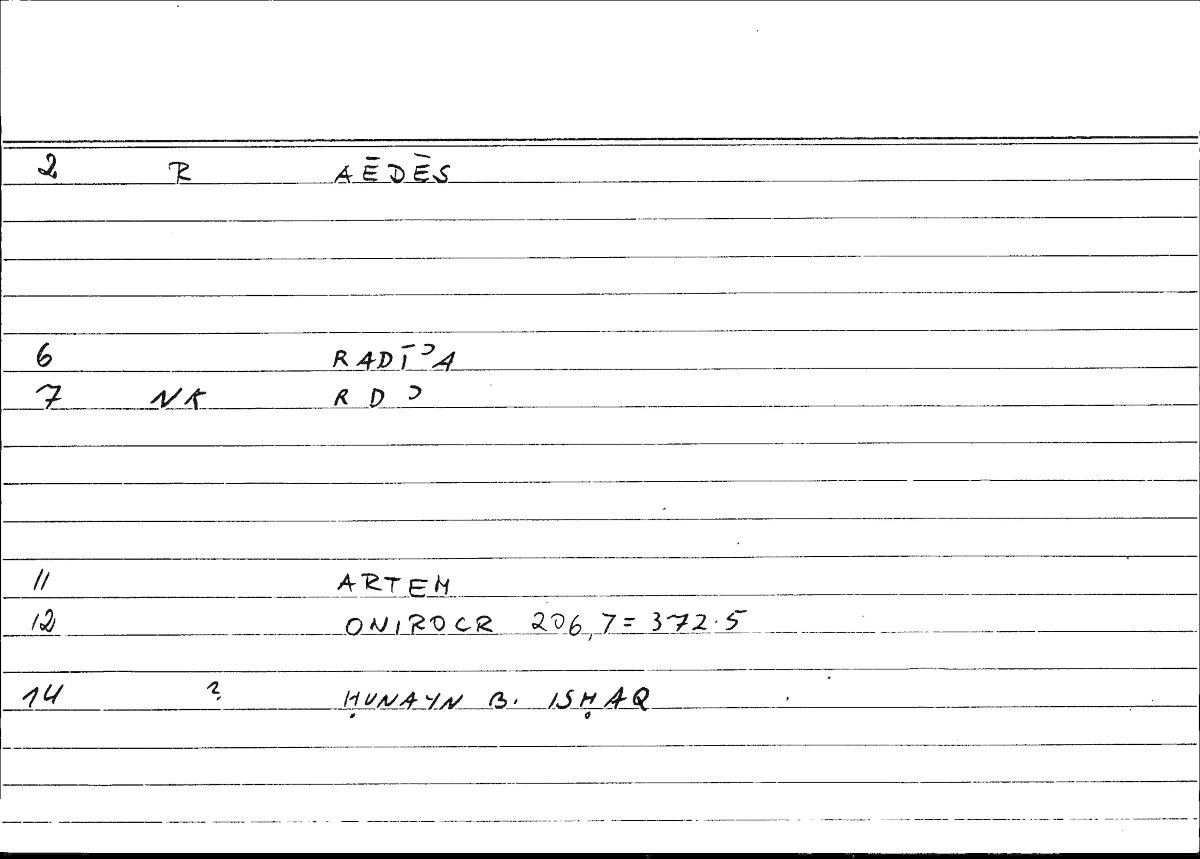 2 R AĒDĒS
6 RADĪʾA
7 NK R D ʾ
11 ARTEM
12 ONIROCR 206,7=372.5
14 ? ḤUNAYN B. ISḤAQ